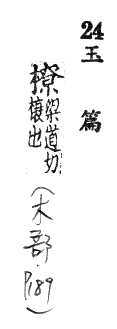 24 玉篇
橑 梁道切
榱也
(木部・P189)